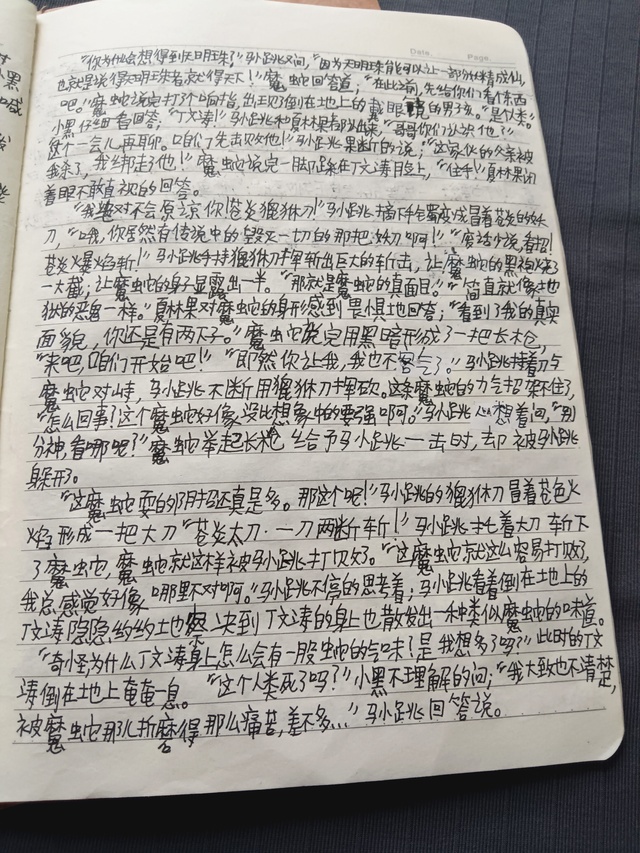 Date. Page.
"你为什么会想得到天明珠?"马小跳又问,"因为天明珠能可以让一部分妖精成仙,
也就是说得天明珠者就得天下!"魔蛇回答道,"在此之前,先给你们看个东西
吧。"魔蛇说完打了个响指,出现倒在地上的戴眼镜的男孩。"是人类。"
小黑仔细看回答;"丁文涛!"马小跳和夏林果都外出来,"哥哥你们认识他?"
这个一会儿再聊。咱们先击败他!"马小跳果断的说;"这家伙的父亲被
我杀了,我绑走了他!"魔蛇说完一脚踩在丁文涛身上,"住手!"夏林果闭
着眼不敢直视的回答。
"我绝对不会原谅你!苍炎猩猩休刀!"马小跳摘下手镯变成冒着苍炎的妖
刀,"哦,你居然有传说中的毁灭一切的那把妖刀啊!""废话少说,看招!
苍炎爆焰斩!"马小跳手持猩猩休刀挥斩出巨大的斩击,让魔蛇的黑袍烧了
一大截;让魔蛇的身子显露出一半。"那就是魔蛇的真面目。""简直就像地
狱的恶鬼一样。"夏林果对魔蛇的身形感到畏惧地回答;"看到了我的真实
面貌,你还是有两下子。"魔蛇说完用黑暗形成了一把长枪,
"来吧,咱们开始吧!""即然你让我,我也不客气了。"马小跳持着刀与
魔蛇对峙,马小跳不断用猩猩休刀挥砍。这条魔蛇的力气招架不住了,
"怎么回事?这个魔蛇好像没比想象中的要强啊。"马小跳心想着问,"别
分神,看哪呢?"魔蛇举起长枪给予马小跳一击时,却被马小跳
躲开了。
"这魔蛇耍的阴招还真是多。那这个呢!"马小跳的猩猩休刀冒着苍色火
焰形成一把大刀"苍炎太刀·一刀两断斩!"马小跳扎着大刀斩下
了魔蛇,魔蛇就这样被马小跳打败了。"这魔蛇就这么容易打败了,
我总感觉好像哪里不对啊。"马小跳不停的思考着;马小跳看着倒在地上的
丁文涛隐隐约约地感决到丁文涛的身上也散发出一种类似魔蛇的味道。
"奇怪,为什么丁文涛身上怎么会有一股蛇的气味?是我想多了吗?"此时的丁文
涛倒在地上奄奄一息。"这个人类死了吗?"小黑不理解的问;"我大致也不清楚,
被魔蛇那儿折磨得那么痛苦,差不多…"马小跳回答说。